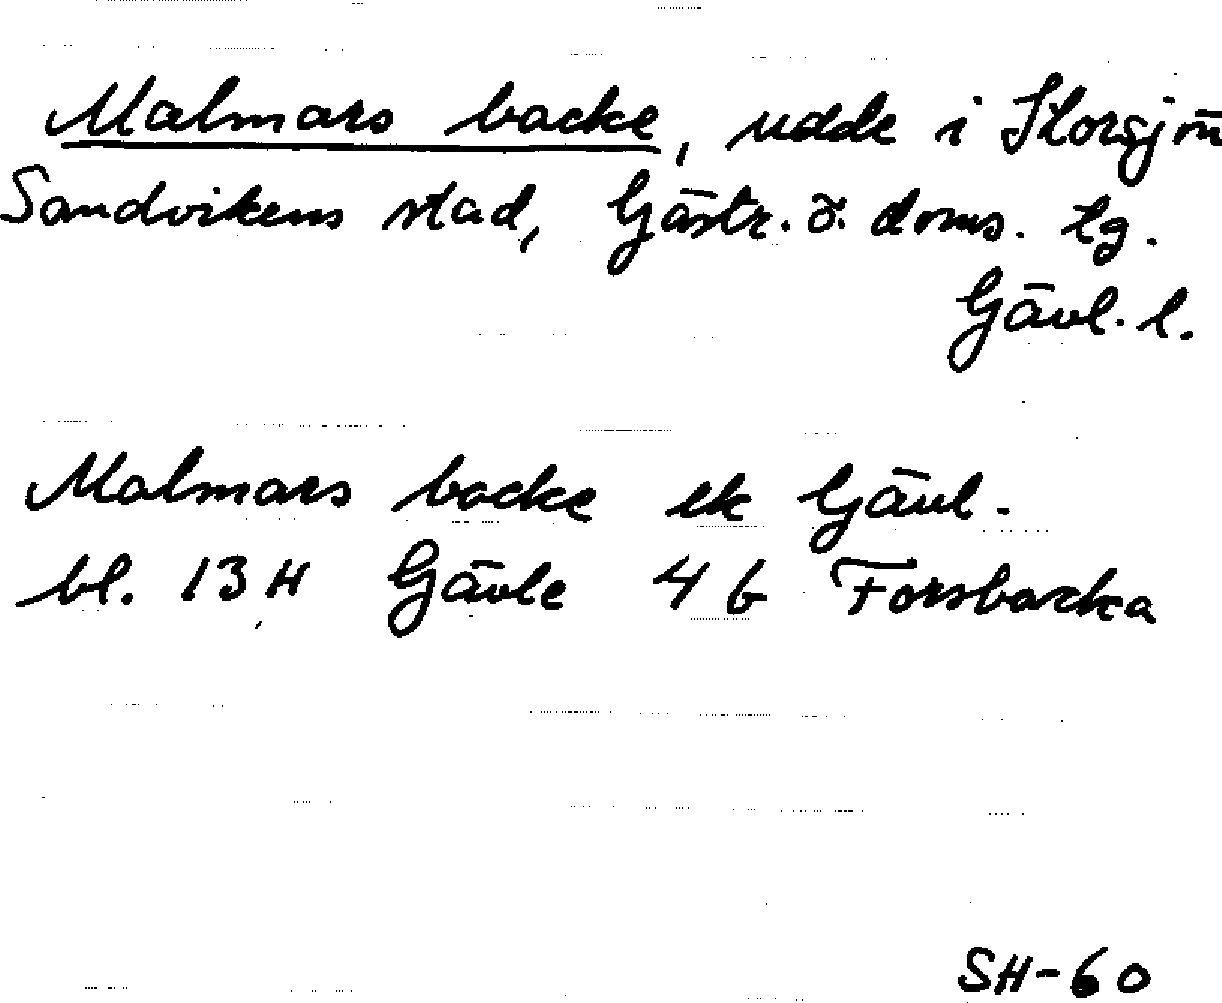 Malmars backe, udde i Storsjön
Sandvikens stad, Gästr. ö. doms. tg.
Gävl. l.
Malmars backe ek Gävl.
bl. 13 H Gävle 4 b Forsbacka
SH-60